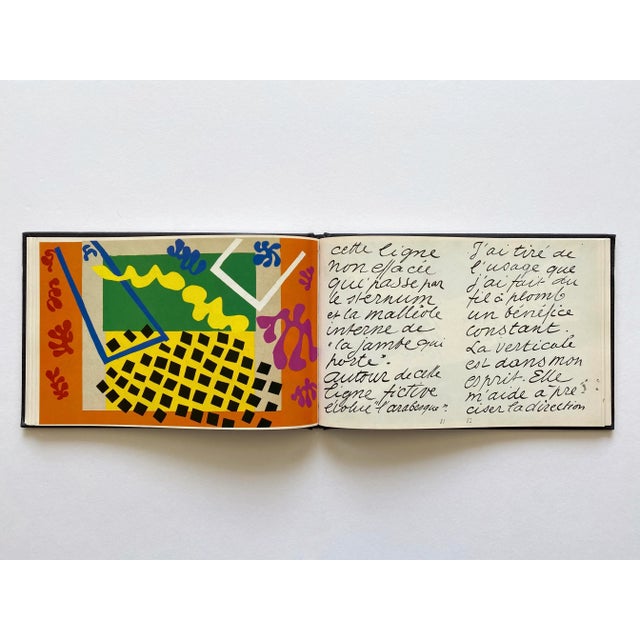 cette ligne
non effacée
qui passe par
le sternum
et la malléole
interne de
"la jambe qui
porte".
Autour de cette
ligne fictive
évolue "l'arabesque".
J'ai tiré de
l'usage que
j'ai fait du
fil à plomb
un bénéfice
constant.
La verticale
est dans mon
esprit. Elle
m'aide à pré
ciser la direction